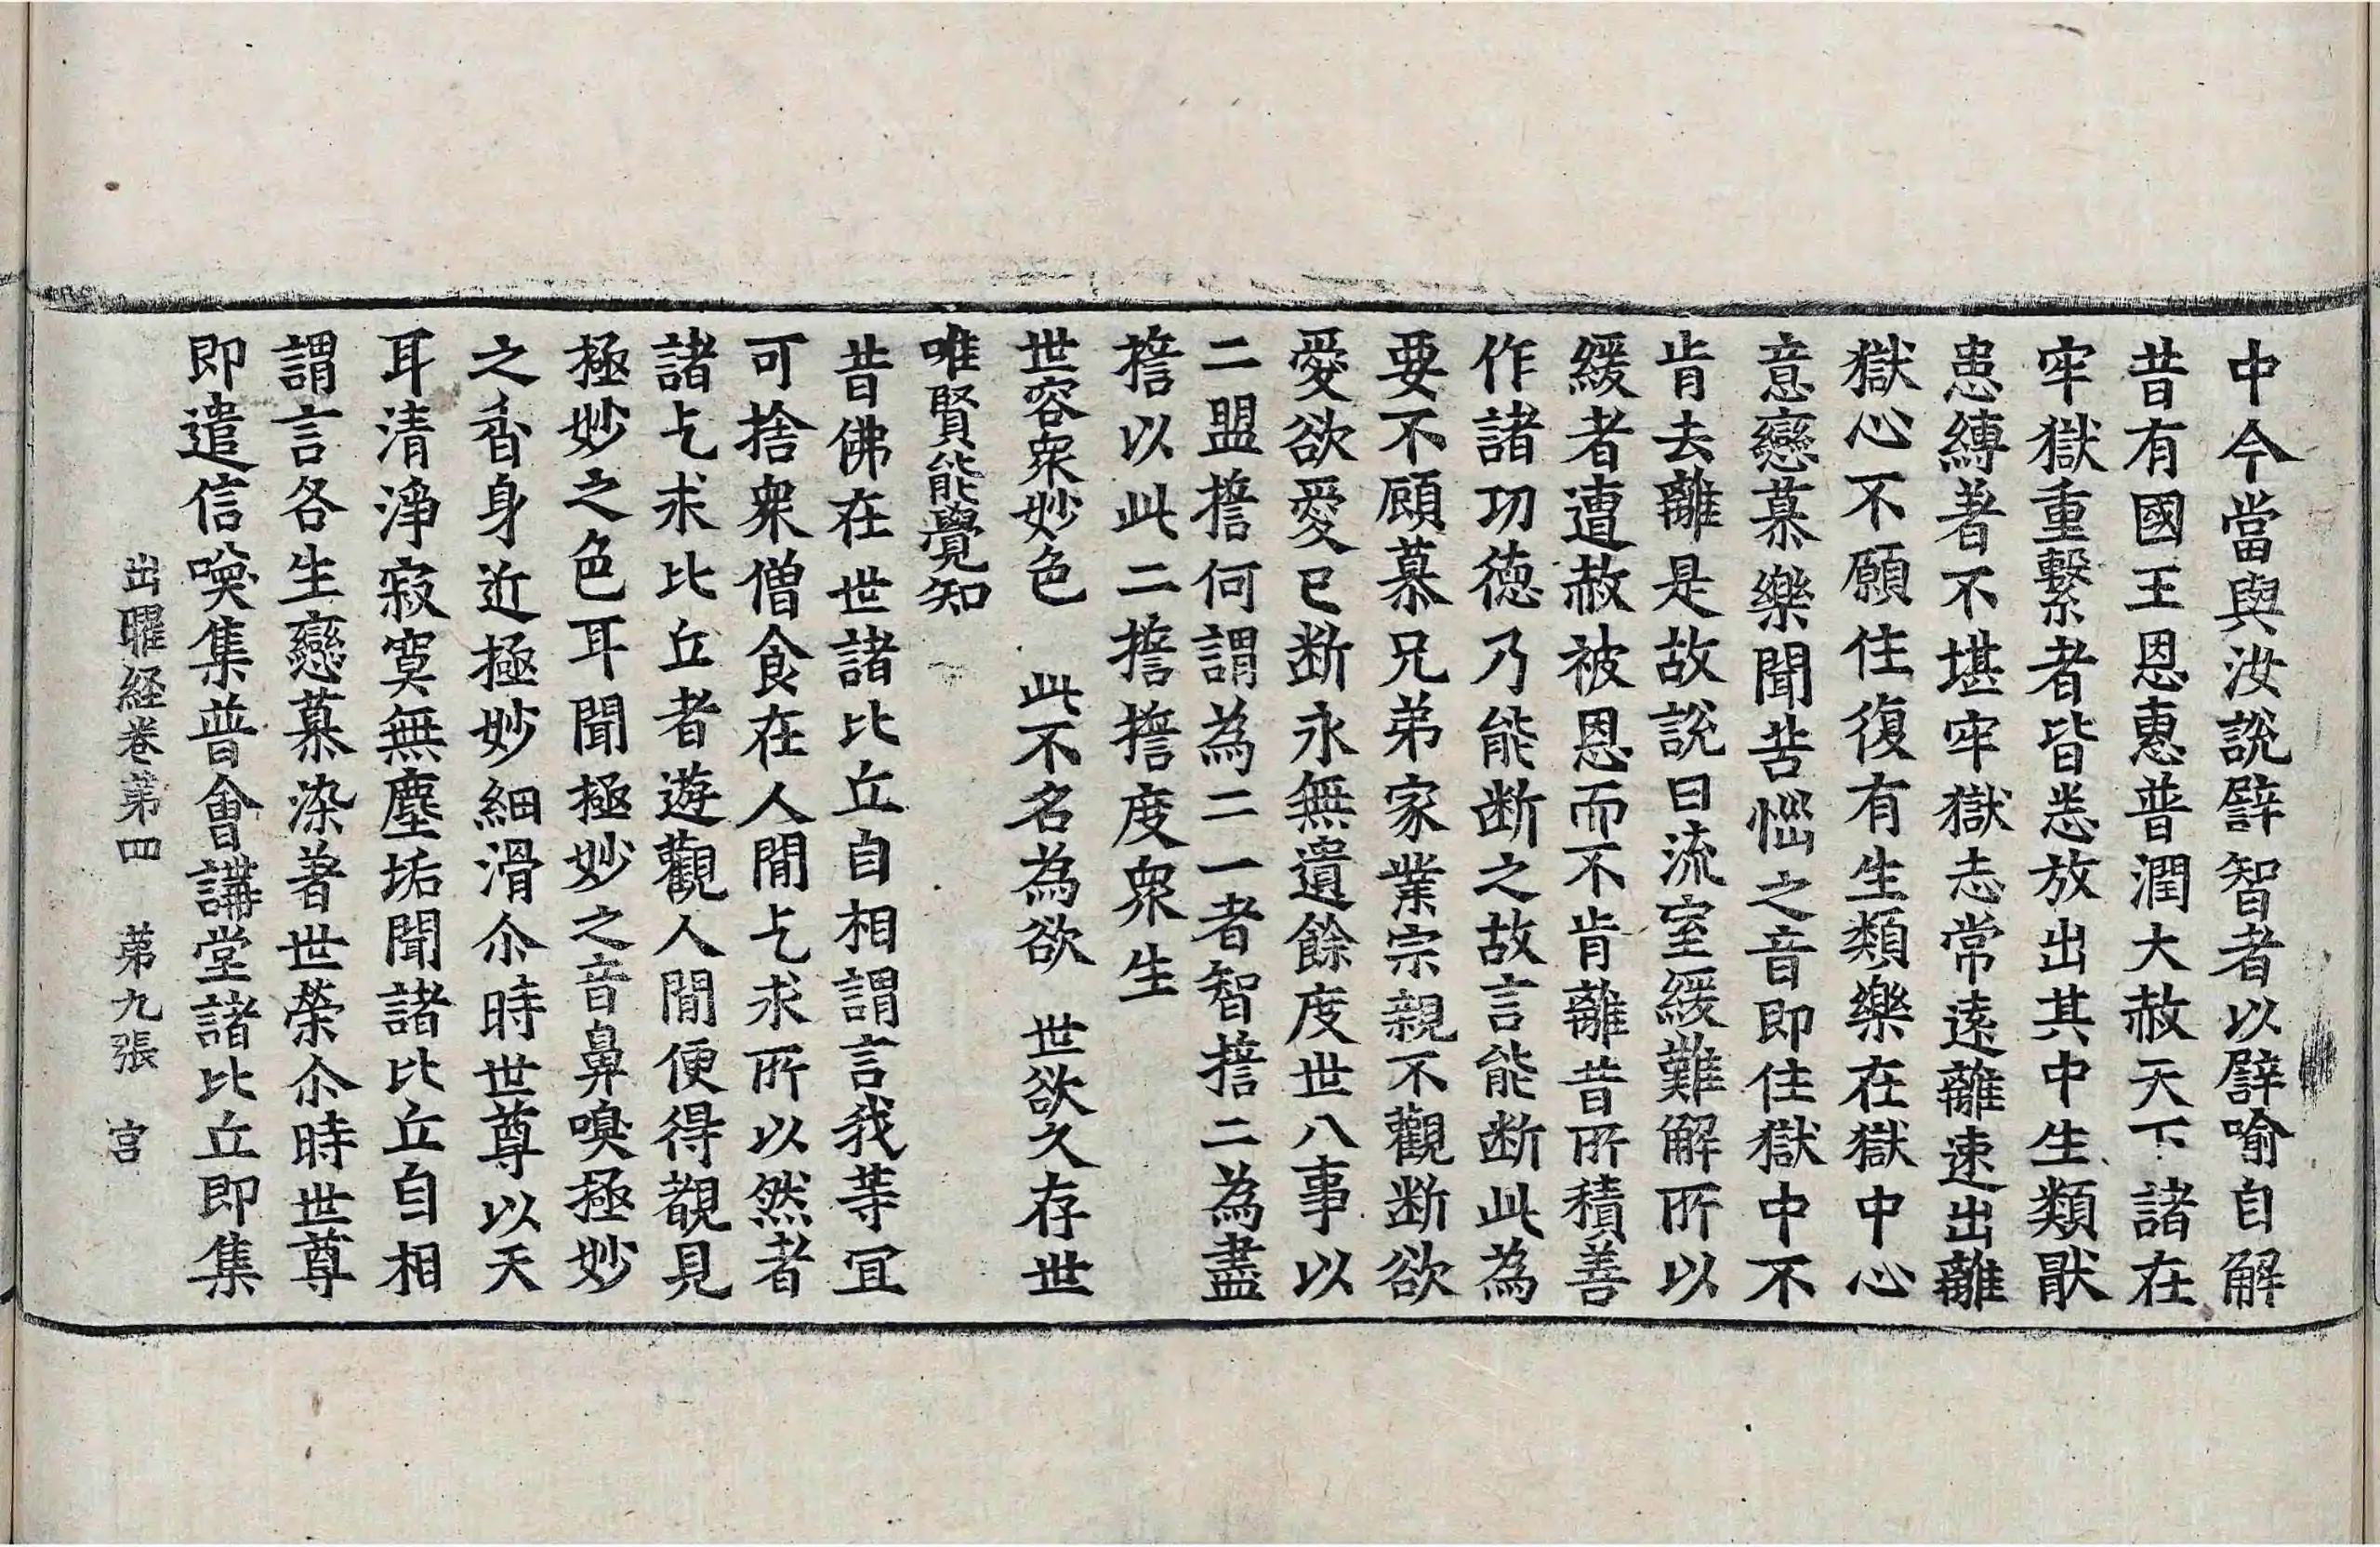 中今當與汝說譬智者以譬喻自解
昔有國王恩惠普潤大赦天下諸在
牢獄重繫者皆悉放出其中生類猒
患縛著不堪牢獄志常遠離速出離
獄心不願住復有生類樂在獄中心
意戀慕樂聞苦惱之音即住獄中不
肯去離是故說曰流室緩難解所以
緩者遭赦被恩而不肯離昔所積善
作諸功德乃能断之故言能断此為
要不顧慕兄弟家業宗親不觀断欲
愛欲愛已断永無遺餘度世八事以
二盟擔何謂為二一者智擔二為盡
擔以此二擔擔度衆生
世容衆妙色　此不名為欲　世欲久存世
唯賢能覺知
昔佛在世諸比丘自相謂言我等冝
可捨衆僧食在人間乞求所以然者
諸乞求比丘者遊觀人間便得覩見
極妙之色耳聞極妙之音鼻嗅極妙
之香身近極妙細滑尒時世尊以天
耳清淨寂寞無塵垢聞諸比丘自相
謂言各生戀慕染著世榮尒時世尊
即遣信喚集普會講堂諸比丘即集
出曜経卷第四　第九張　宮